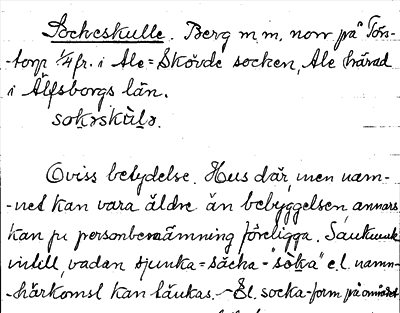 Sockeskulle. Berg m.m. norr på Tors-
-torp 1/4 fr. i Ale=Skövde socken, Ale härad
i Älfsborgs län.
sokəskùlə.
Oviss betydelse. Hus där, men nam-
-net kan vara äldre än bebyggelsen, annars
kan ju personbenämning föreligga.
intill, vadan sjunka=säcka-"söka" e.l. namn-
-härkomst kan tänkas. - El. socka-form på området